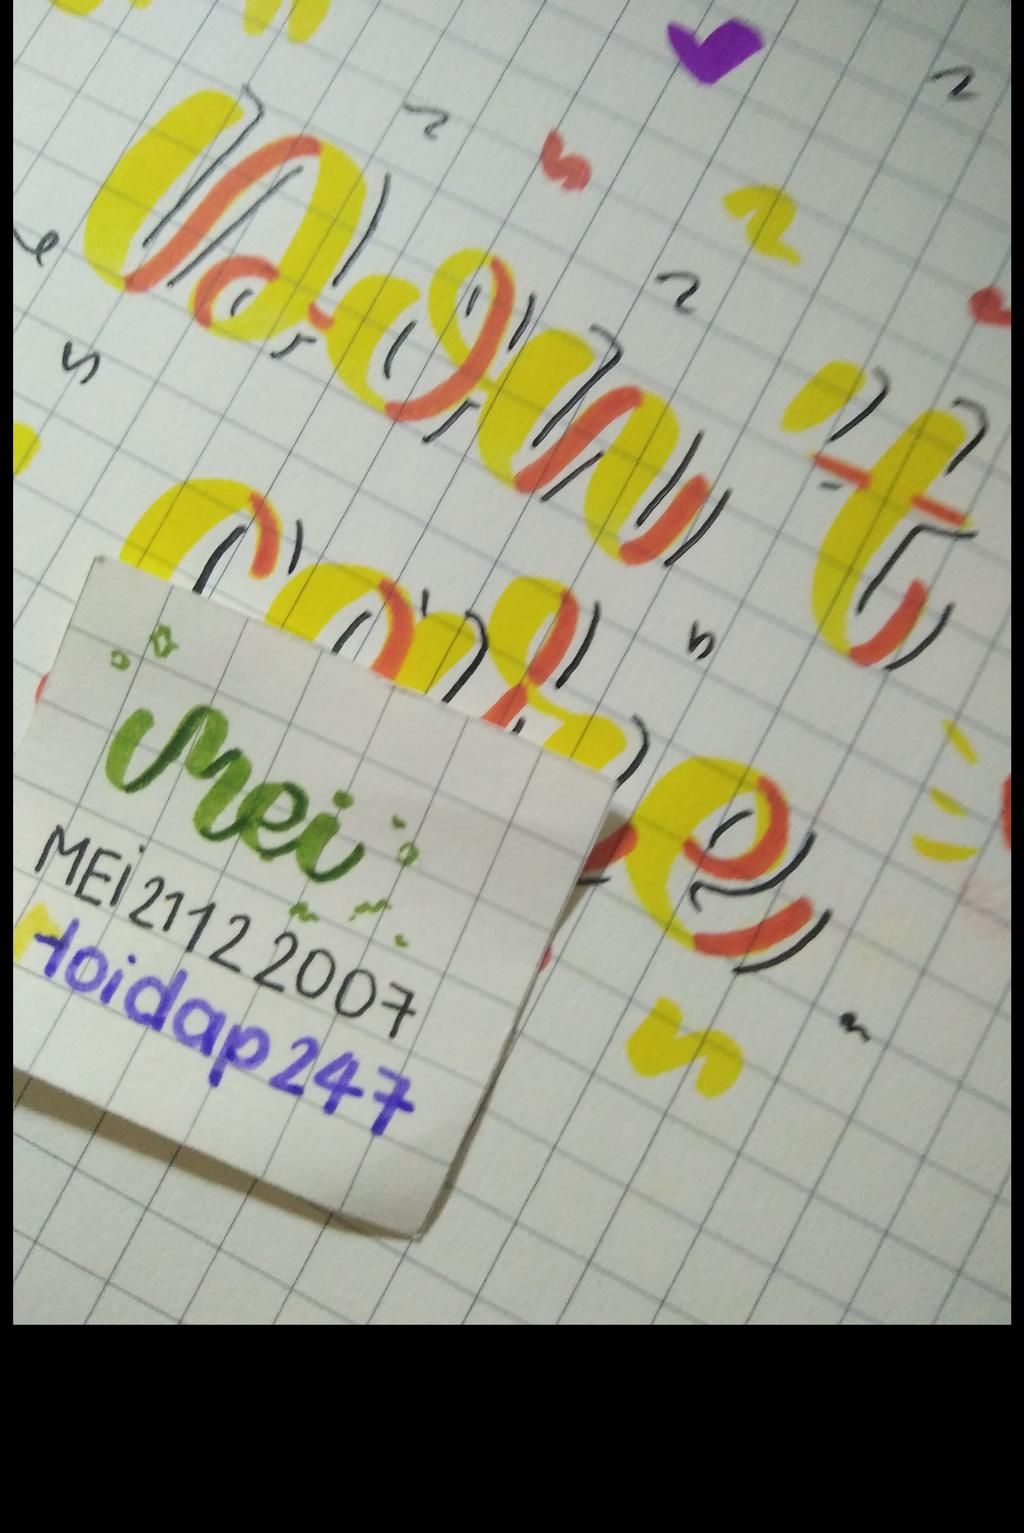 Don't
care
Mei
MEi21122007
Hoidap247